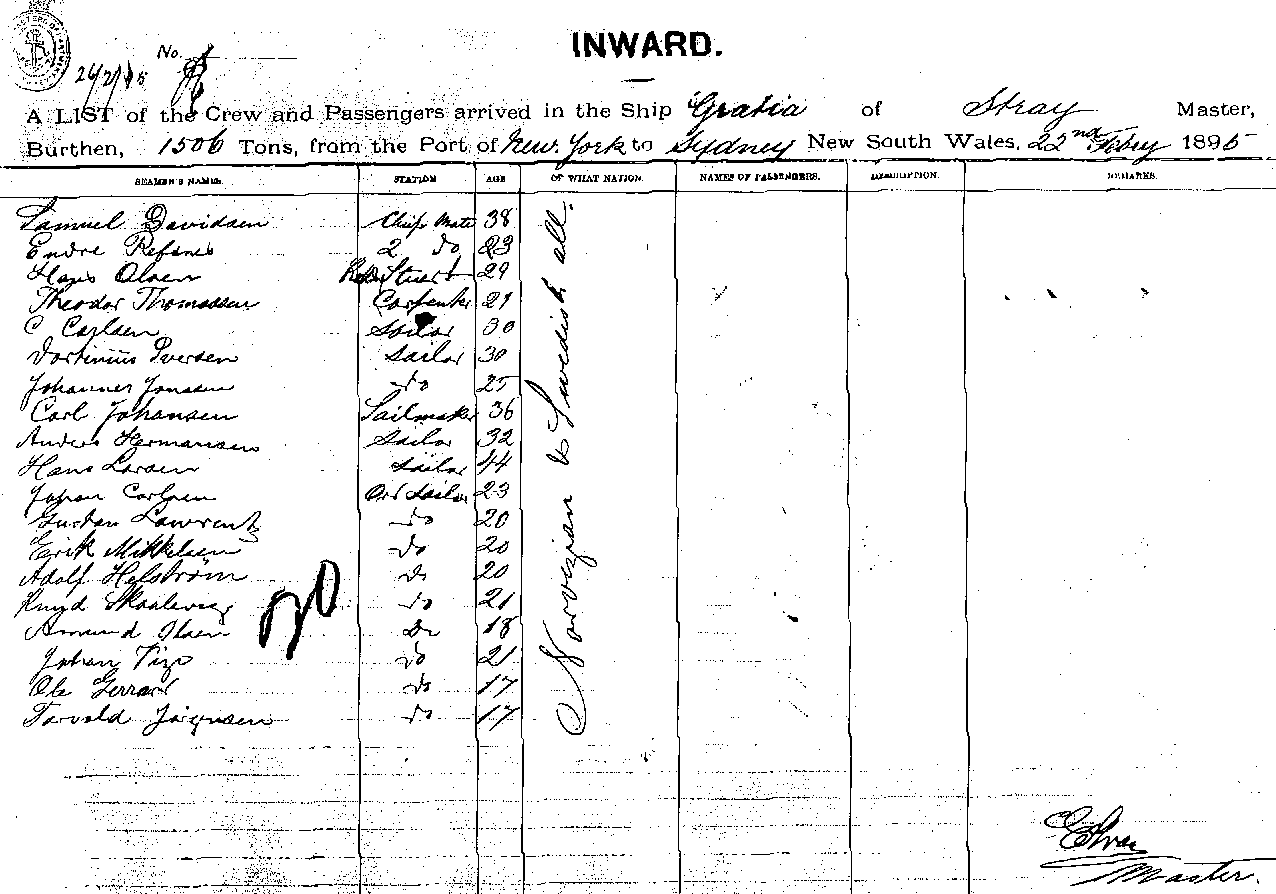 INWARD.
No.
A LIST of the Crew and Passengers arrived in the Ship Gratia of Stray Master,
Burthen, 1506 Tons, from the Port of New York to Sydney New South Wales, 22nd Febry 1895
SEAMEN'S NAMES. STATION AGE OF WHAT NATION. NAMES OF PASSENGERS. DESCRIPTION. REMARKS.
Samuel Davidsen Chief Mate 38
Endre Refsnes 2 do 23
Hans Olsen Stuert 29
Theodor Thomassen Carpenter
C Carlsen Sailor 30
Iversen Sailor 30
Johannes Jonassen do 25
Carl Johansen Sailmaker 36
Anders Hermansen Sailor 32
Hans Larsen Sailor 44
Johan Carlsen Ord Sailor 23
Gustav Lawrentz do 20
Erik Mikkelsen do 20
Adolf Helström do 20
Knud do 21
Amund Olsen Do 18
Johan do 21
Ole Gerrard do 17
Torvald Jörgensen do 17
Norvegian & Swedish all.
20
Master.